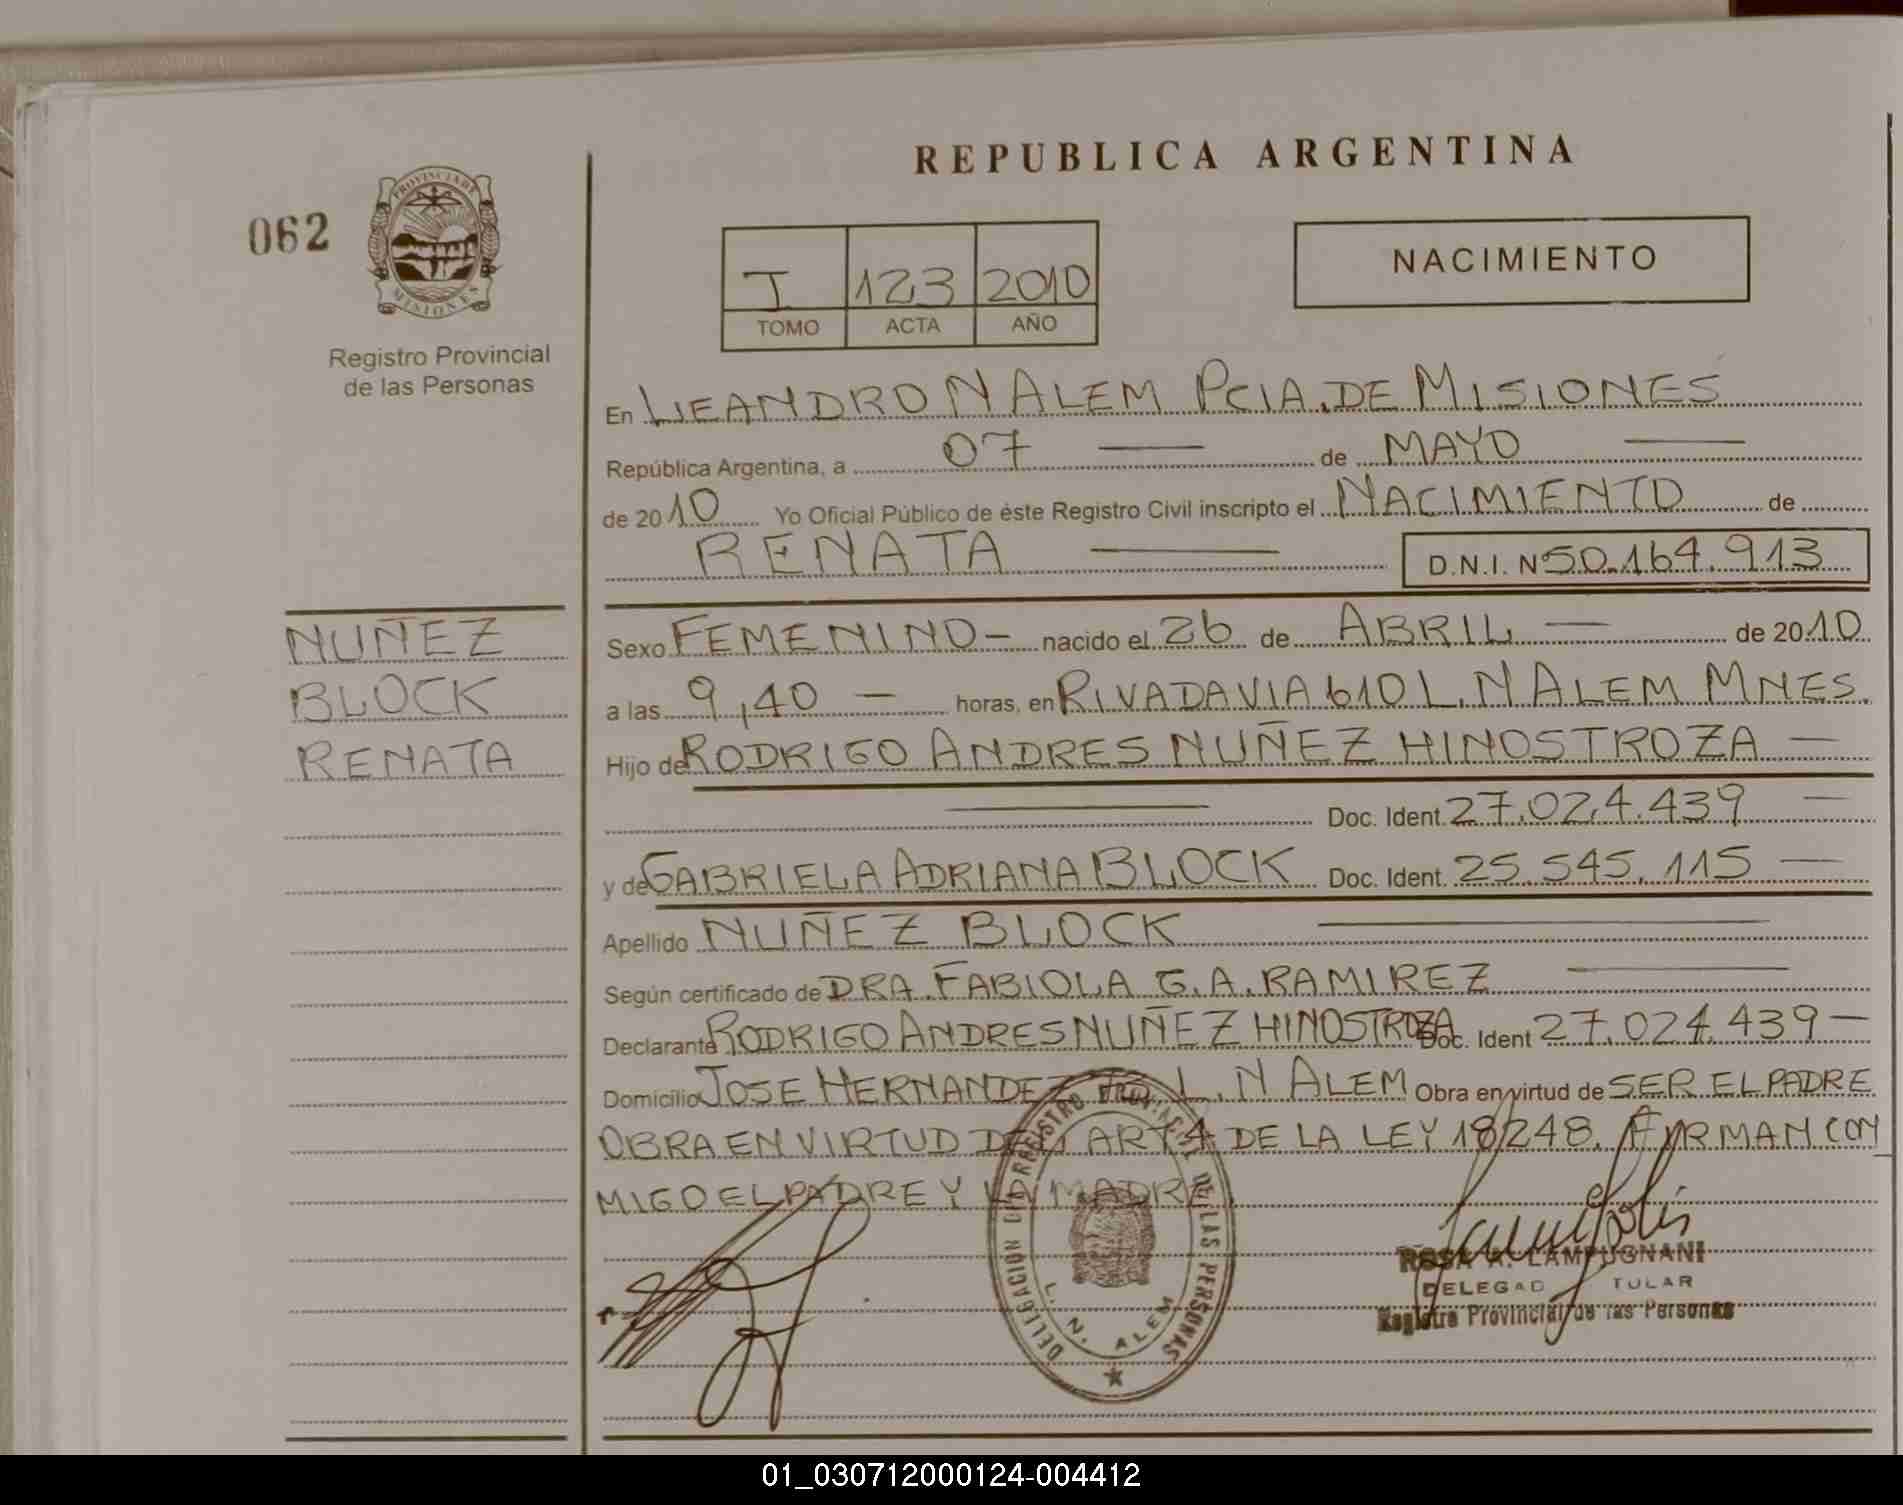 REPUBLICA ARGENTINA
062
PROVINCIA DE
MISIONES
Registro Provincial
de las Personas
I 123 2010
TOMO ACTA AÑO
NACIMIENTO
En LEANDRO N ALEM PCIA. DE MISIONES
República Argentina, a 07 — de MAYO —
de 2010 Yo Oficial Público de éste Registro Civil inscripto el NACIMIENTO de
RENATA — D.N.I. N 50.164.913
NUÑEZ
BLOCK
RENATA
Sexo FEMENINO — nacido el 26 de ABRIL — de 2010
a las 9,40 — horas, en RIVADAVIA 610 L. N ALEM MNES.
Hijo de RODRIGO ANDRES NUÑEZ HINOSTROZA —
— Doc. Ident. 27.024.439 —
y de GABRIELA ADRIANA BLOCK Doc. Ident. 25.545.115 —
Apellido NUÑEZ BLOCK —
Según certificado de DRA. FABIOLA G. A. RAMIREZ —
Declarante RODRIGO ANDRES NUÑEZ HINOSTROZA Doc. Ident 27.024.439 —
Domicilio JOSE HERNANDEZ L. N ALEM Obra en virtud de SER EL PADRE
OBRA EN VIRTUD ART 4 DE LA LEY 18248. FIRMAN CON
MIGO EL PADRE Y LA MADRE.
DELEGACION DEL REGISTRO PROVINCIAL DE LAS PERSONAS
L. N. ALEM
ROSA A. LAMPUGNANI
DELEGAD TULAR
Registro Provincial de las Personas
01_030712000124-004412